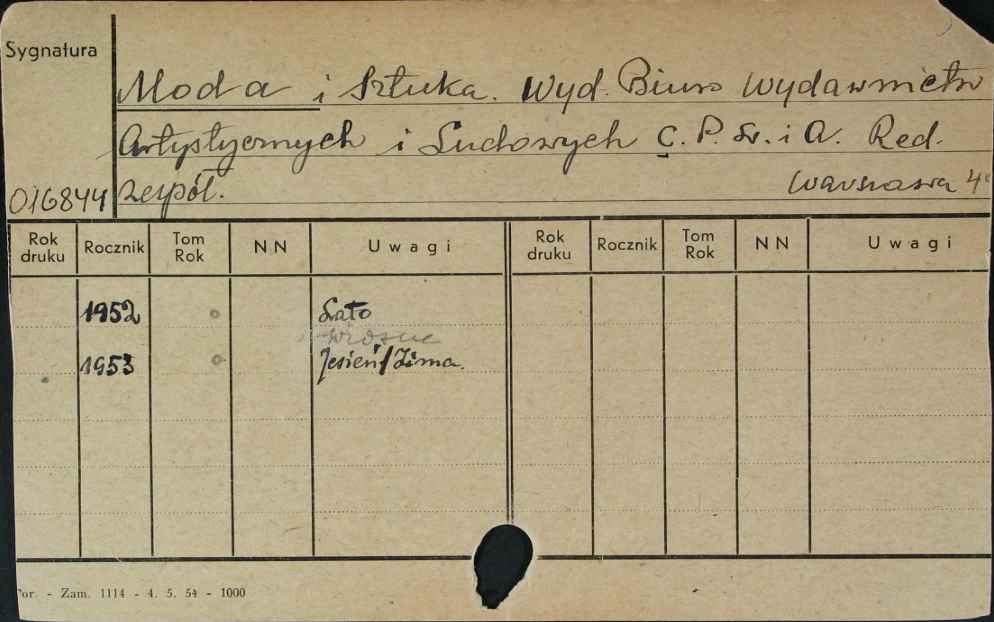 Sygnatura
Moda i Sztuka. Wyd. Biuro Wydawnictw
Artystycznych i Ludowych C. P. L. i A. Red.
016844 zespół. Warszawa 4°
Rok druku Rocznik Tom Rok NN Uwagi Rok druku Rocznik Tom Rok NN Uwagi
1952 Lato
wiosna
1953 Jesień/Zima.
or. - Zam. 1114 - 4. 5. 54 - 1000